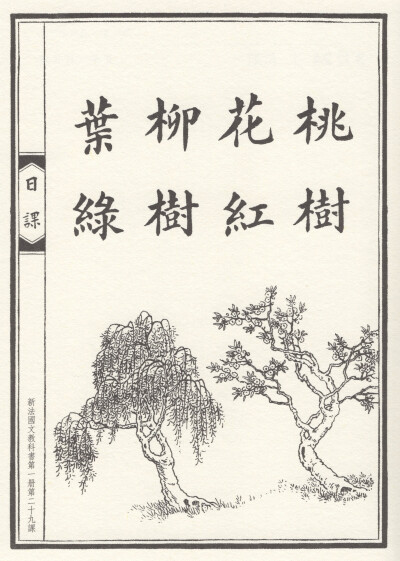 桃樹
花紅
柳樹
葉綠
日課
新法國文教科書第一冊第二十九課